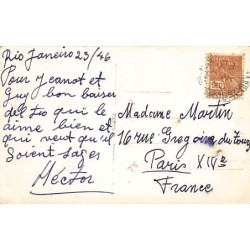 Rio Janeiro 23/46
Pour Jeanot et
Guy bon baiser
del tio qui le
aime bien et
qui veut qu'il
Soient sages
Héctor
Madame Martin
16 rue Gregoire du Tours
Paris XIVe
France